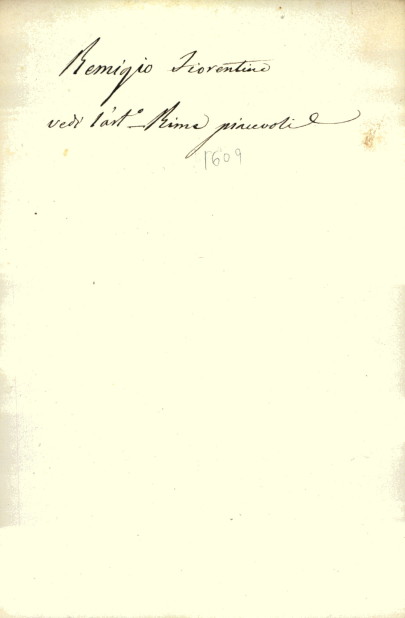 Remigio Fiorentino
vedi l'art.º Rime piacevoli
1609